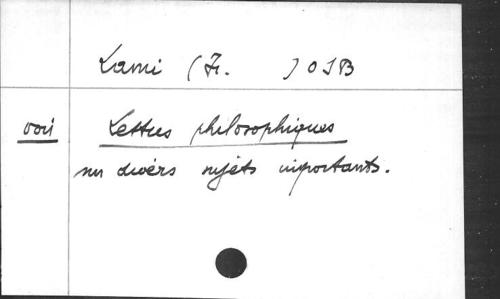 Lami (Fr. ) OSB
voir Lettres philosophiques
sur divers sujets importants.